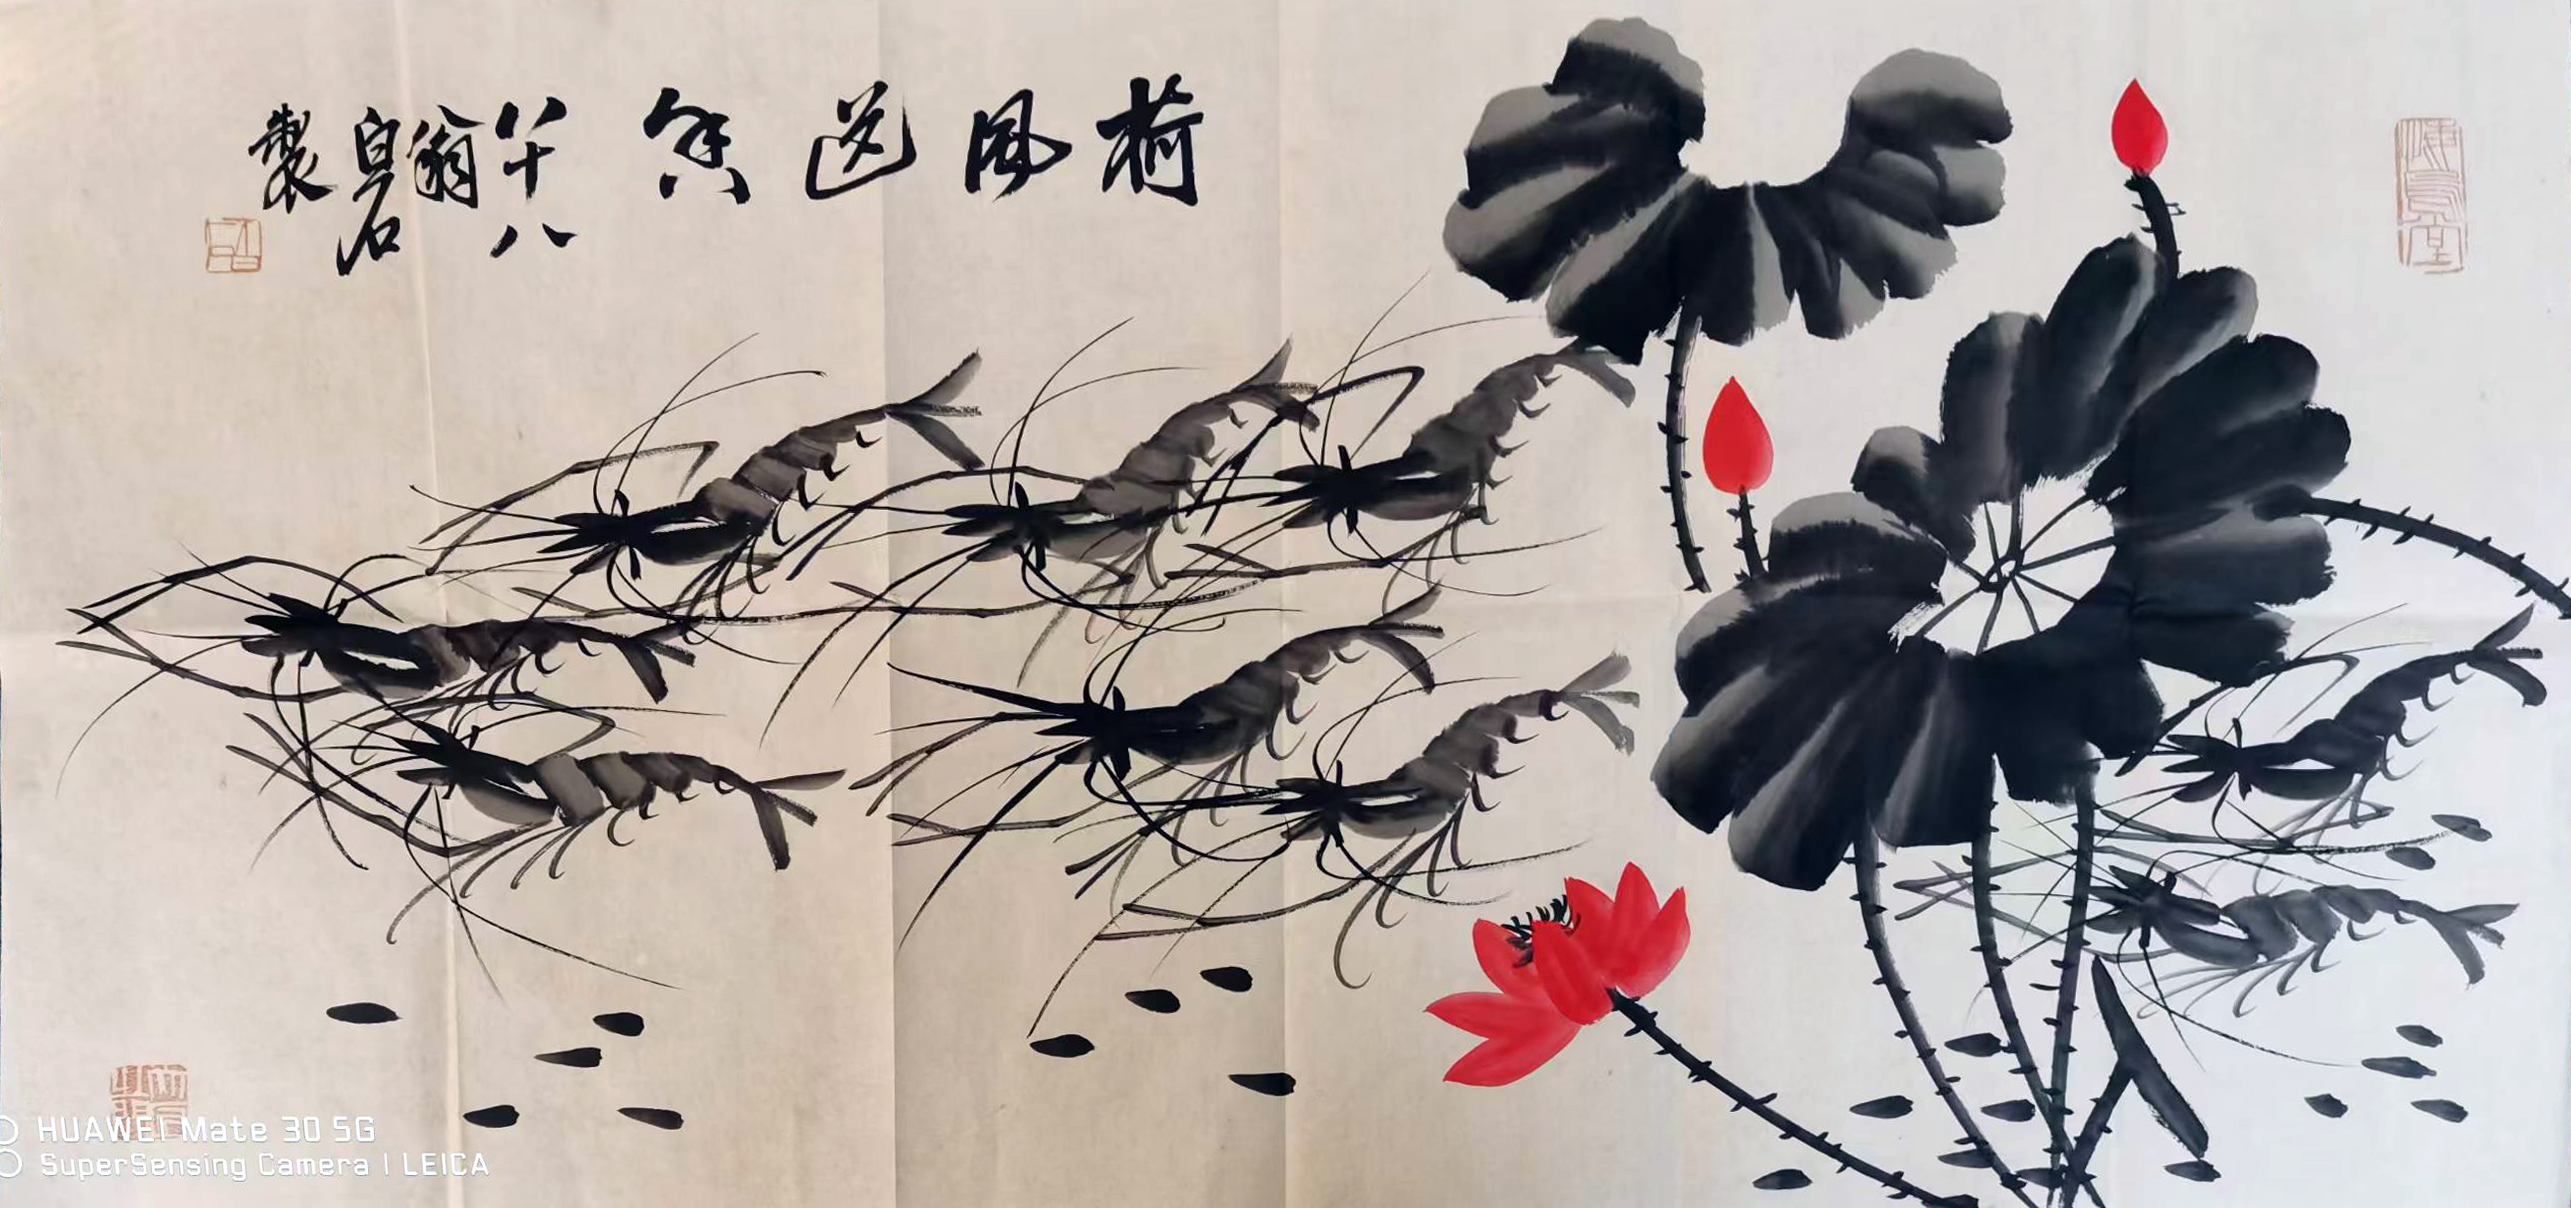 荷风送香
八十八翁白石製
HUAWEI Mate 30 5G
SuperSensing Camera | LEICA